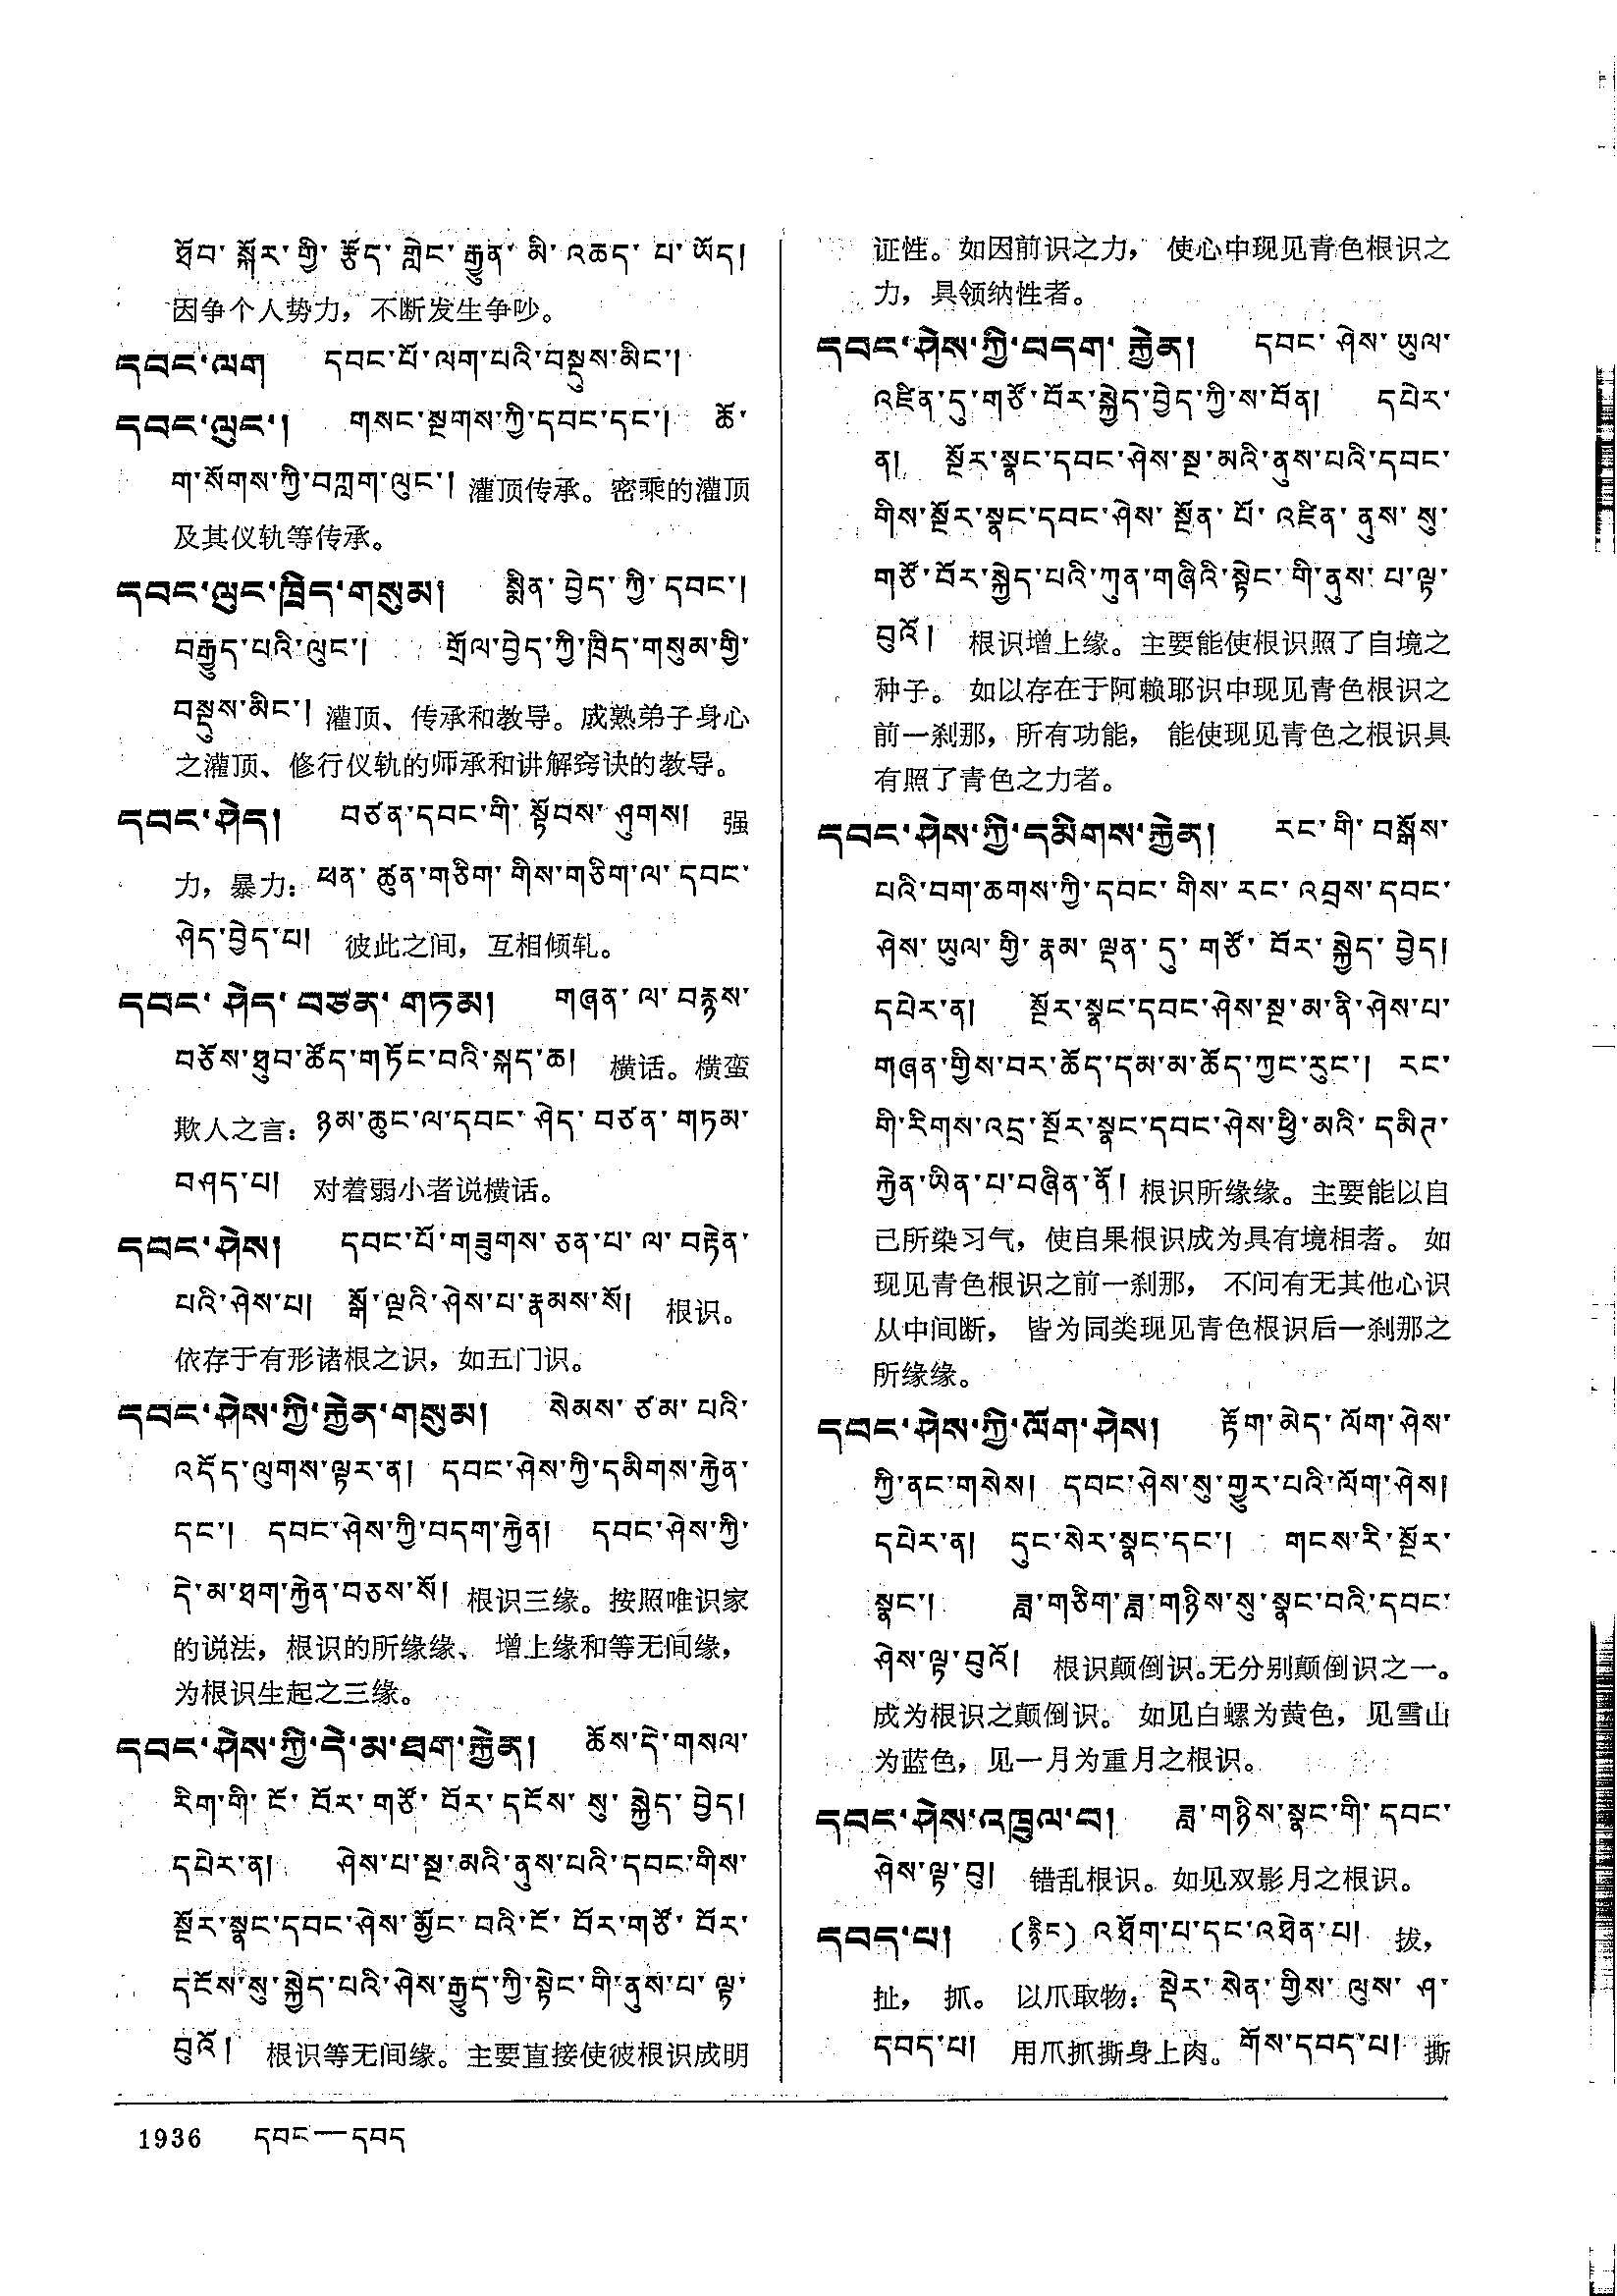 ཐོབ་སྐོར་གྱི་རྩོད་གླེང་རྒྱུན་མི་འཆད་པ་ཡོད།
因争个人势力，不断发生争吵。
དབང་ལག དབང་པོ་ལག་པའི་བསྡུས་མིང་།
དབང་ལུང་། གསང་སྔགས་ཀྱི་དབང་དང་། ཆོ་
ག་སོགས་ཀྱི་བཀླག་ལུང་། 灌顶传承。密乘的灌顶
及其仪轨等传承。
དབང་ལུང་ཁྲིད་གསུམ། སྨིན་བྱེད་ཀྱི་དབང་།
བརྒྱུད་པའི་ལུང་། གྲོལ་བྱེད་ཀྱི་ཁྲིད་གསུམ་གྱི་
བསྡུས་མིང་། 灌顶、传承和教导。成熟弟子身心
之灌顶、修行仪轨的师承和讲解窍诀的教导。
དབང་ཤེད། བཙན་དབང་གི་སྟོབས་ཤུགས། 强
力，暴力：ཕན་ཚུན་གཅིག་གིས་གཅིག་ལ་དབང་
ཤེད་བྱེད་པ། 彼此之间，互相倾轧。
དབང་ཤེད་བཙན་གཏམ། གཞན་ལ་བརྙས་
བཅོས་ཐུབ་ཚོད་གཏོང་བའི་སྐད་ཆ། 横话。横蛮
欺人之言：ཉམ་ཆུང་ལ་དབང་ཤེད་བཙན་གཏམ་
བཤད་པ། 对着弱小者说横话。
དབང་ཤེས། དབང་པོ་གཟུགས་ཅན་པ་ལ་བརྟེན་
པའི་ཤེས་པ། སྒོ་ལྔའི་ཤེས་པ་རྣམས་སོ། 根识。
依存于有形诸根之识，如五门识。
དབང་ཤེས་ཀྱི་རྐྱེན་གསུམ། སེམས་ཙམ་པའི་
འདོད་ལུགས་ལྟར་ན། དབང་ཤེས་ཀྱི་དམིགས་རྐྱེན་
དང་། དབང་ཤེས་ཀྱི་བདག་རྐྱེན། དབང་ཤེས་ཀྱི་
དེ་མ་ཐག་རྐྱེན་བཅས་སོ། 根识三缘。按照唯识家
的说法，根识的所缘缘、增上缘和等无间缘，
为根识生起之三缘。
དབང་ཤེས་ཀྱི་དེ་མ་ཐག་རྐྱེན། ཆོས་དེ་གསལ་
རིག་གི་ངོ་བོར་གཙོ་བོར་དངོས་སུ་སྐྱེད་བྱེད།
དཔེར་ན། ཤེས་པ་སྔ་མའི་ནུས་པའི་དབང་གིས་
སྔོར་སྣང་དབང་ཤེས་མྱོང་བའི་ངོ་བོར་གཙོ་བོར་
དངོས་སུ་སྐྱེད་པའི་ཤེས་རྒྱུད་ཀྱི་སྟེང་གི་ནུས་པ་ལྟ་
བུའོ། 根识等无间缘。主要直接使彼根识成明
证性。如因前识之力，使心中现见青色根识之
力，具领纳性者。
དབང་ཤེས་ཀྱི་བདག་རྐྱེན། དབང་ཤེས་ཡུལ་
འཛིན་དུ་གཙོ་བོར་སྐྱེད་བྱེད་ཀྱི་ས་བོན། དཔེར་
ན། སྔོར་སྣང་དབང་ཤེས་སྔ་མའི་ནུས་པའི་དབང་
གིས་སྔོར་སྣང་དབང་ཤེས་སྔོན་པོ་འཛིན་ནུས་སུ་
གཙོ་བོར་སྐྱེད་པའི་ཀུན་གཞིའི་སྟེང་གི་ནུས་པ་ལྟ་
བུའོ། 根识增上缘。主要能使根识照了自境之
种子。如以存在于阿赖耶识中现见青色根识之
前一刹那，所有功能，能使现见青色之根识具
有照了青色之力者。
དབང་ཤེས་ཀྱི་དམིགས་རྐྱེན། རང་གི་བསྒོས་
པའི་བག་ཆགས་ཀྱི་དབང་གིས་རང་འབྲས་དབང་
ཤེས་ཡུལ་གྱི་རྣམ་ལྡན་དུ་གཙོ་བོར་སྐྱེད་བྱེད།
དཔེར་ན། སྔོར་སྣང་དབང་ཤེས་སྔ་མ་ནི་ཤེས་པ་
གཞན་གྱིས་བར་ཆོད་དམ་མ་ཆོད་ཀྱང་རུང་། རང་
གི་རིགས་འདྲ་སྔོར་སྣང་དབང་ཤེས་ཕྱི་མའི་དམིཊ་
རྐྱེན་ཡིན་པ་བཞིན་ནོ། 根识所缘缘。主要能以自
己所染习气，使自果根识成为具有境相者。如
现见青色根识之前一刹那，不问有无其他心识
从中间断，皆为同类现见青色根识后一刹那之
所缘缘。
དབང་ཤེས་ཀྱི་ལོག་ཤེས། རྟོག་མེད་ལོག་ཤེས་
ཀྱི་ནང་གསེས། དབང་ཤེས་སུ་གྱུར་པའི་ལོག་ཤེས།
དཔེར་ན། དུང་སེར་སྣང་དང་། གངས་རི་སྔོར་
སྣང་། ཟླ་གཅིག་ཟླ་གཉིས་སུ་སྣང་བའི་དབང་
ཤེས་ལྟ་བུའོ། 根识颠倒识。无分别颠倒识之一。
成为根识之颠倒识。如见白螺为黄色，见雪山
为蓝色，见一月为重月之根识。
དབང་ཤེས་འཁྲུལ་བ། ཟླ་གཉིས་སྣང་གི་དབང་
ཤེས་ལྟ་བུ། 错乱根识。如见双影月之根识。
དབད་པ། (རྙིང) འཐོག་པ་དང་འཐེན་པ། 拔，
扯，抓。以爪取物：སྡེར་སེན་གྱིས་ལུས་ཤ་
དབད་པ། 用爪抓撕身上肉。གོས་དབད་པ། 撕
1936 དབང—དབད